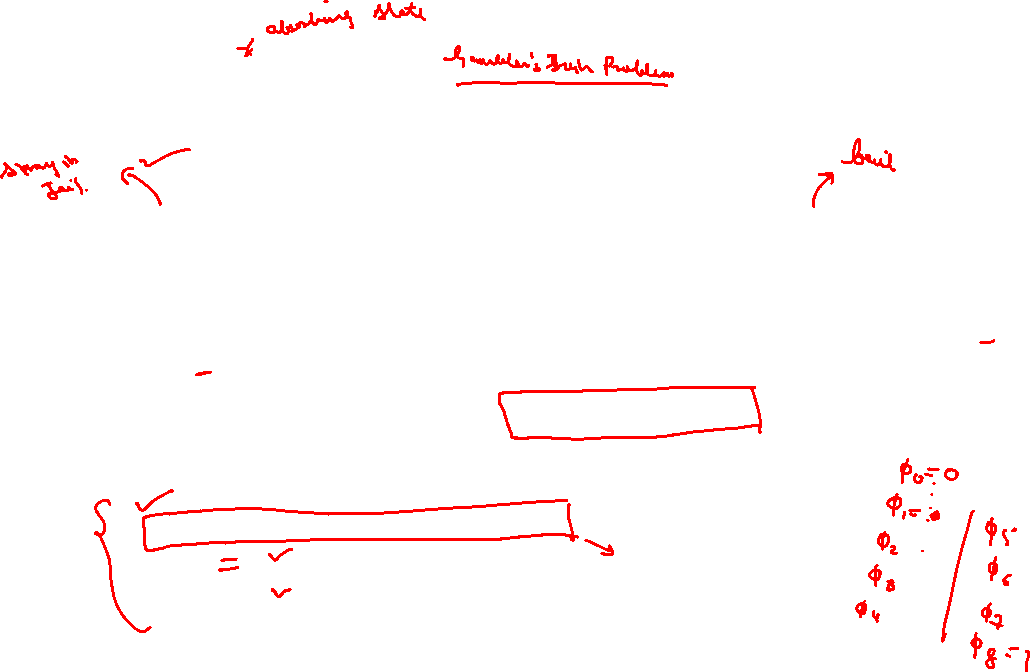 absorbing state
Gambler's Ruin Problem
stay in
Jail.
bail
ϕ₀ = 0
ϕ₁ =
ϕ₂
ϕ₃
ϕ₄
ϕ₅
ϕ₆
ϕ₇
ϕ₈ = 1
=